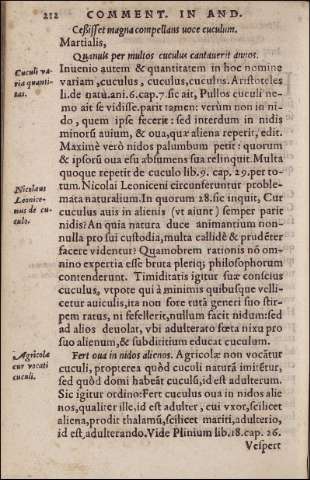 212 COMMENT. IN AND.
Cessisset magna compellans uoce cuculum.
Martialis,
Quamuis per multos cuculus cantauerit annos.
Cuculi va
ria quanti-
tas.
Inuenio autem & quantitatem in hoc nomine
variam, cuculus, cuculus, cuculus. Aristoteles
li. de natu. ani. 6. cap. 7. sic ait, Pullos cuculi ne-
mo ait se vidisse. parit tamen: verùm non in ni-
do, quem ipse fecerit: sed interdum in nidis
minorũ auium, & oua, quæ aliena repetit, edit.
Maximè verò nidos palumbum petit: quorum
& ipsorũ oua esu absumens sua relinquit. Multa
quoque repetit de cuculo lib. 9. cap. 29. per to-
Nicolaus
Leonice-
nus de cu-
culo.
tum. Nicolai Leoniceni circunferuntur proble-
mata naturalium. In quorum 28. sic inquit, Cur
cuculus auis in alienis (vt aiunt) semper parie
nidis? An quia natura duce animantium non-
nulla pro sui custodia, multa callidè & prudẽter
facere videntur? Quamobrem rationis nõ om-
nino expertia esse bruta pleriq; philosophorum
contenderunt. Timiditatis igitur suæ conscius
cuculus, vtpote qui à minimis quibusque velli-
cetur auiculis, ita non fore tutã generi suo stir-
pem ratus, ni fefellerit, nullum facit nidum: sed
ad alios deuolat, vbi adulterato fœta nixu pro
suo alienum, & subdititium educat cuculum.
Agricolæ
cur vocati
cuculi.
Fert oua in nidos alienos. Agricolæ non vocãtur
cuculi, propterea quòd cuculi naturã imitẽtur,
sed quòd domi habeãt cuculũ, id est adulterum.
Sic igitur ordino: Fert cuculus oua in nidos alie
nos, qualiter ille. id est adulter, cui vxor, scilicet
aliena, prodit thalamũ, scilicet mariti, adulterio,
id est, adulterando. Vide Plinium lib. 18. cap. 26.
Vespert